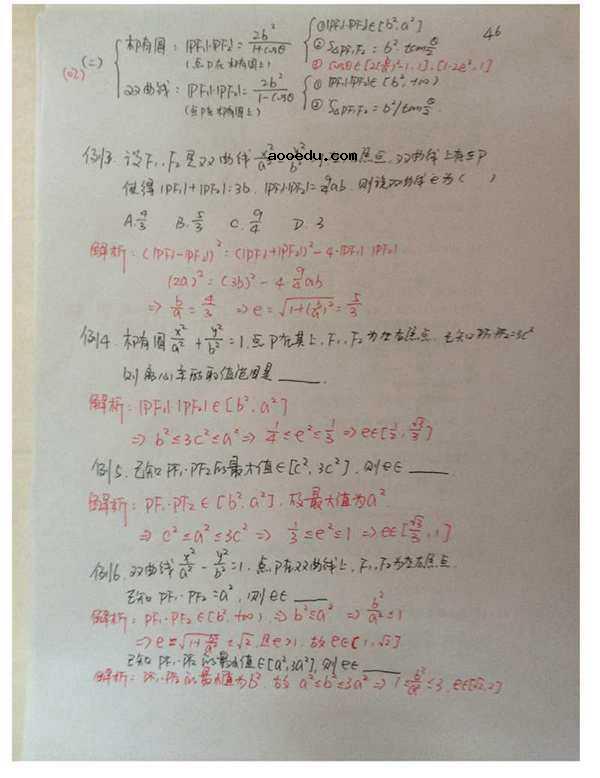 46
(二) 椭圆: |PF₁|·|PF₂| = 2b²/(1+cosθ) ① |PF₁|·|PF₂| ∈ [b², a²]
(点P在椭圆上) ② S△PF₁F₂ = b²·tan θ/2
双曲线: |PF₁|·|PF₂| = 2b²/(1-cosθ) ① |PF₁|·|PF₂| ∈ [b², +∞)
(点P在椭圆上) ② S△PF₁F₂ = b²/tan θ/2
例13. 设F₁、F₂是双曲线 x²/a² y²/b² 焦点, 双曲线上存在P
aooedu.com
使得 |PF₁|+|PF₂|=3b, |PF₁|·|PF₂|=9/4 ab, 则该双曲线e为( )
A. 4/3 B. 5/3 C. 9/4 D. 3
解析: (|PF₁|-|PF₂|)² = (|PF₁|+|PF₂|)² - 4·|PF₁|·|PF₂|
(2a)² = (3b)² - 4·9/4ab
⇒ b/a = 4/3 ⇒ e = √(1+(b/a)²) = 5/3
例14. 椭圆 x²/a² + y²/b² = 1, 点P在其上, F₁、F₂为左右焦点, 已知PF₁·PF₂=3c²
则离心率的取值范围是
解析: |PF₁|·|PF₂| ∈ [b², a²]
⇒ b² ≤ 3c² ≤ a² ⇒ 1/4 ≤ e² ≤ 1/3 ⇒ e∈[1/2, √3/3]
例15. 已知 PF₁·PF₂的最大值∈[c², 3c²], 则e∈
解析: PF₁·PF₂ ∈ [b², a²], 最大值为a²
⇒ c² ≤ a² ≤ 3c² ⇒ 1/3 ≤ e² ≤ 1 ⇒ e∈[√3/3, 1]
例16. 双曲线 x²/a² - y²/b² = 1, 点P在双曲线上, F₁、F₂为左右焦点.
已知 PF₁·PF₂ = a², 则e∈
解析: PF₁·PF₂∈[b², +∞) ⇒ b² ≤ a² ⇒ b²/a² ≤ 1
⇒ e = √(1+b²/a²) ≤ √2, 且e>1, 故e∈(1, √2]
已知 PF₁·PF₂的最小值∈[a², 3a²], 则e∈
解析: PF₁·PF₂的最小值为b², 故 a² ≤ b² ≤ 3a² ⇒ 1 ≤ b²/a² ≤ 3, e∈[√2, 2]